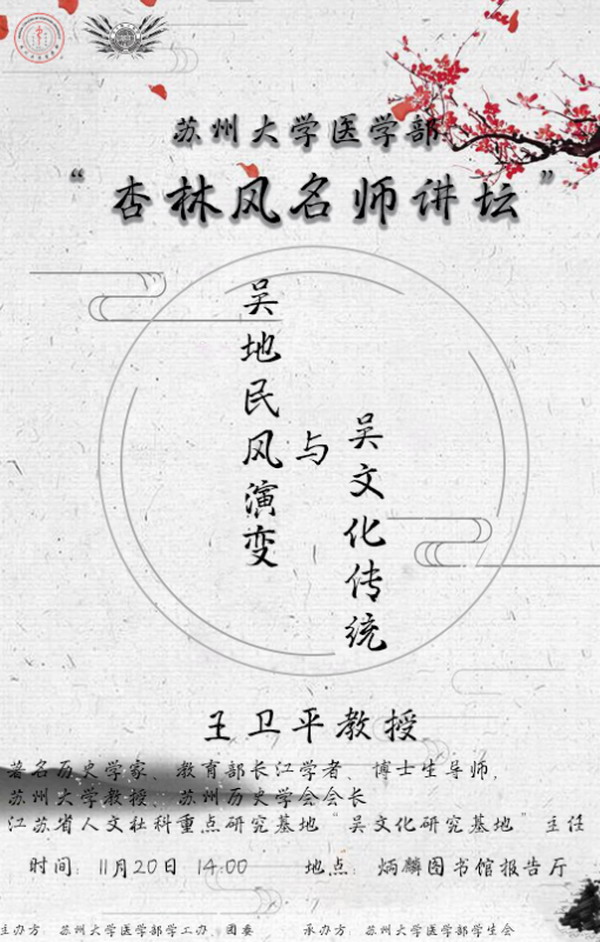 苏州大学医学部
“杏林风名师讲坛”
吴地民风演变
与
吴文化传统
王卫平教授
著名历史学家、教育部长江学者、博士生导师,
苏州大学教授、苏州历史学会会长
江苏省人文社科重点研究基地“吴文化研究基地”主任
时间: 11月20日 14:00 地点: 炳麟图书馆报告厅
主办方: 苏州大学医学部学工办、团委 承办方: 苏州大学医学部学生会